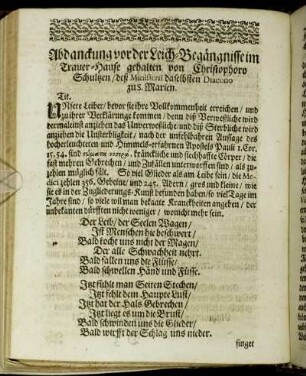 Abdanckung vor der Leich-Begängnisse im
Trauer-Hause gehalten von Christophoro
Schultzen / deß Ministerii daselbsten Diacono
zu S. Marien.
Tit.
UNsere Leiber / bevor sie ihre Vollkommenheit erreichen / und
zu ihrer Verklärunge kommen / denn diß Verweßliche wird
dermaleinst anziehen das Unverweßliche / und diß Sterbliche wird
anziehen die Unsterbligkeit / nach der unfehlbahren Aussage des
hocherleuchteten und Himmels-erfahrnen Apostels Pauli 1. Cor.
15. 54. sind kränckliche und siechhaffte Cörper / die
fast mehren Gebrechen / und Zufällen unterworffen sind / als zu
zehlen müglich fält. So viel Glieder als am Leibe sein / die Me-
dici zehlen 356. Gebeine / und 245. Adern / gros und kleine / wie
sie es in der Zugliederungs-Kunst befunden haben / so viel Tage im
Jahre sind / so viele will man bekante Kranckheiten angeben / der
unbekanten dürfften nicht weniger / wo nicht mehr sein.
Der Leib / der Seelen Wagen /
Ist Menschen hie beschwert /
Bald kocht uns nicht der Magen /
Der alle Schwachheit nehrt.
Bald fallen uns die Flüsse /
Bald schwellen Händ und Füsse.
Itzt fühlt man Seiten Stechen /
Itzt fehlt dem Haupte Lust /
Itzt hat der Hals Gebrechen /
Itzt liegt es um die Brust /
Bald schwinden uns die Glieder /
Bald wirfft der Schlag uns nieder.